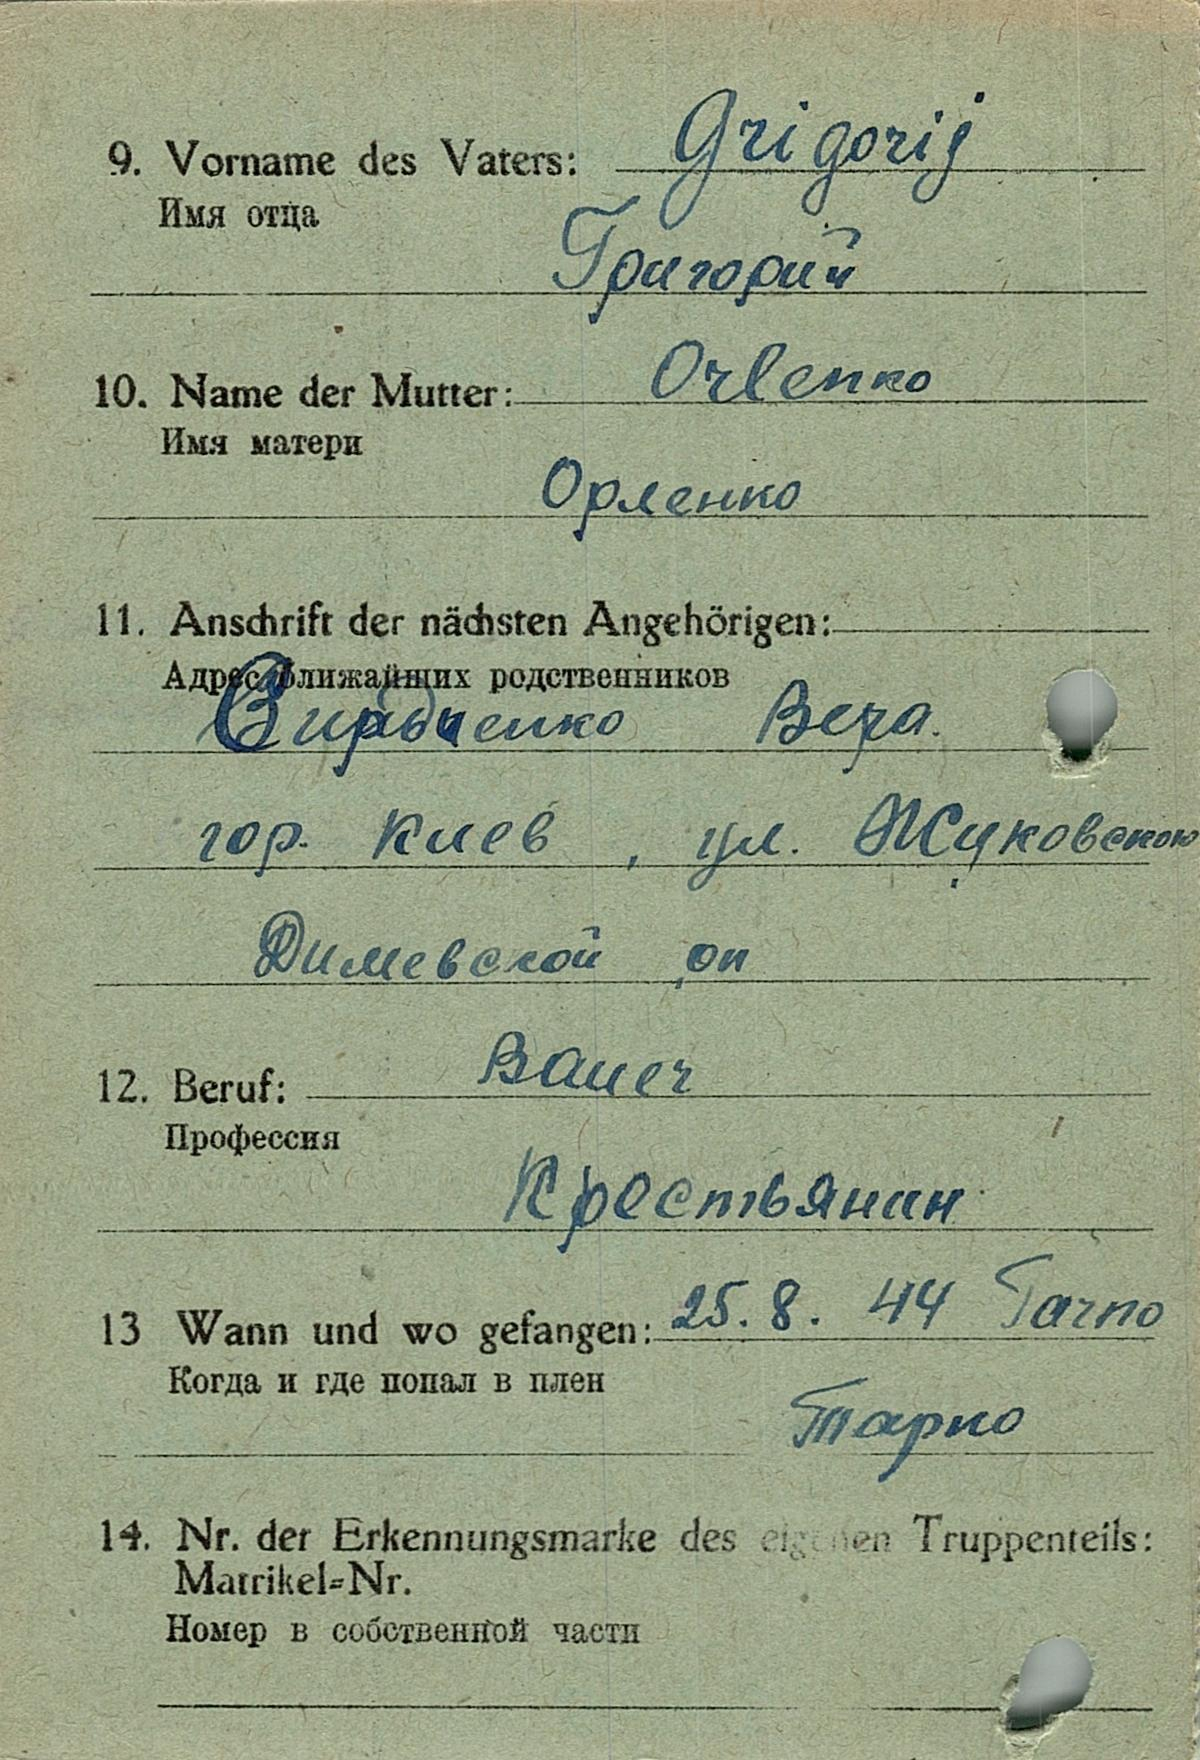 9. Vorname des Vaters: Grigorij
Имя отца
Григорий
10. Name der Mutter: Orlenko
Имя матери
Орленко
11. Anschrift der nächsten Angehörigen:
Адрес ближайших родственников
Вера.
гор. Киев, ул. Жуковского
Димевской
12. Beruf: Bauer
Профессия
Крестьянин
13 Wann und wo gefangen: 25.8. 44 Tarno
Когда и где попал в плен
Тарно
14. Nr. der Erkennungsmarke des eigenen Truppenteils:
Matrikel=Nr.
Номер в собственной части